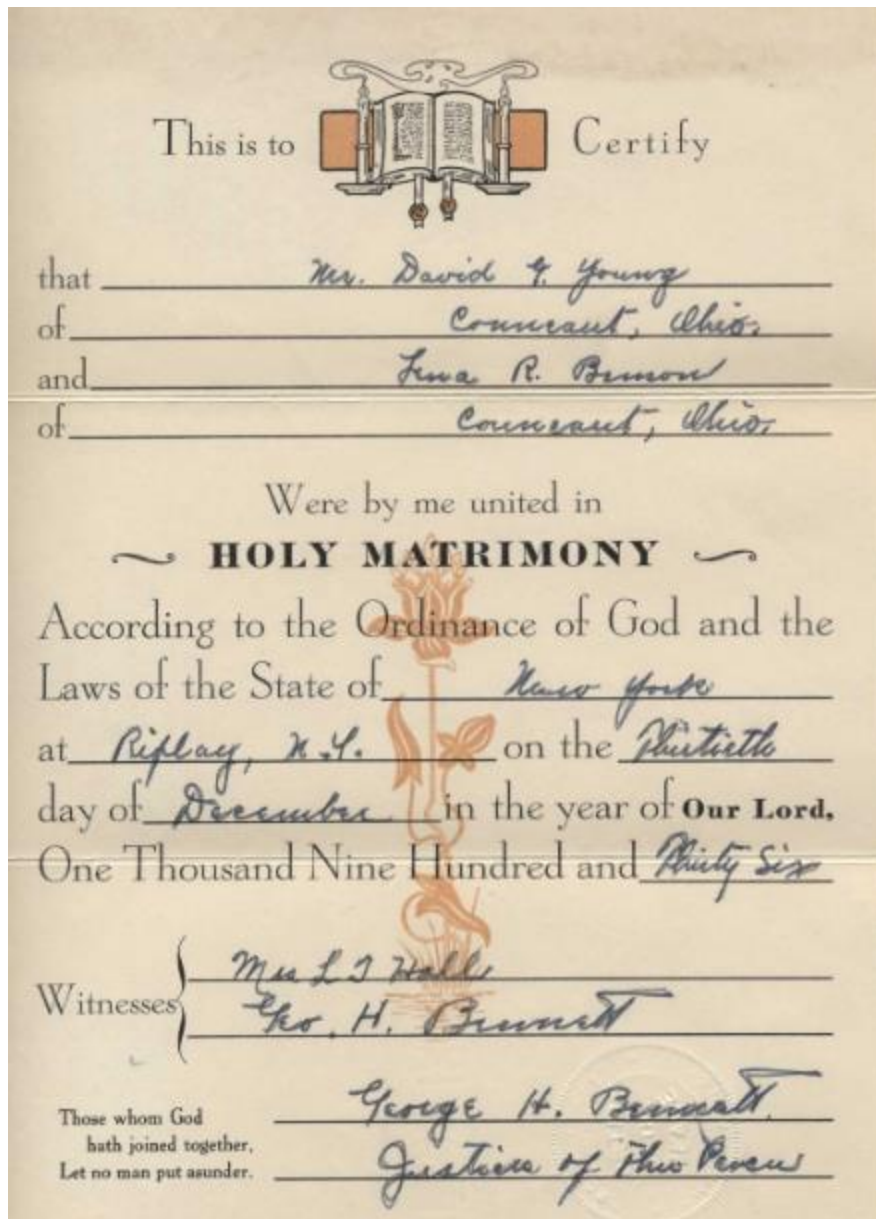 This is to Certify
that Mr. David G. Young
of Conneaut, Ohio.
and Lena R.
of Conneaut, Ohio.
Were by me united in
HOLY MATRIMONY
According to the Ordinance of God and the
Laws of the State of New York
at Ripley, N.Y. on the Thirtieth
day of December in the year of Our Lord,
One Thousand Nine Hundred and Thirty Six
Mrs L J Hall
Witnesses
Geo. H. Bennett
Those whom God George H. Bennett
hath joined together,
Let no man put asunder. Justice of The Peace